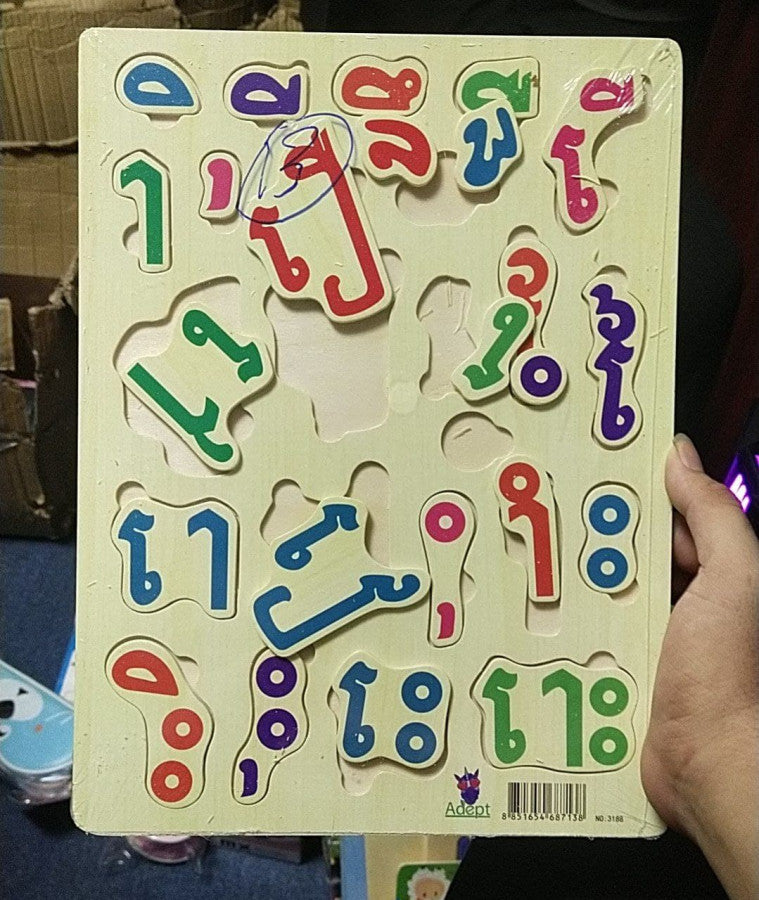 ិ ី ឹ ឺ ើ
ា ុ ឿ
េ ៃ
ោ ុំ ាំ ះ
ិះ ុះ េះ ោះ
Adept
8 851654 687138 NO:3188